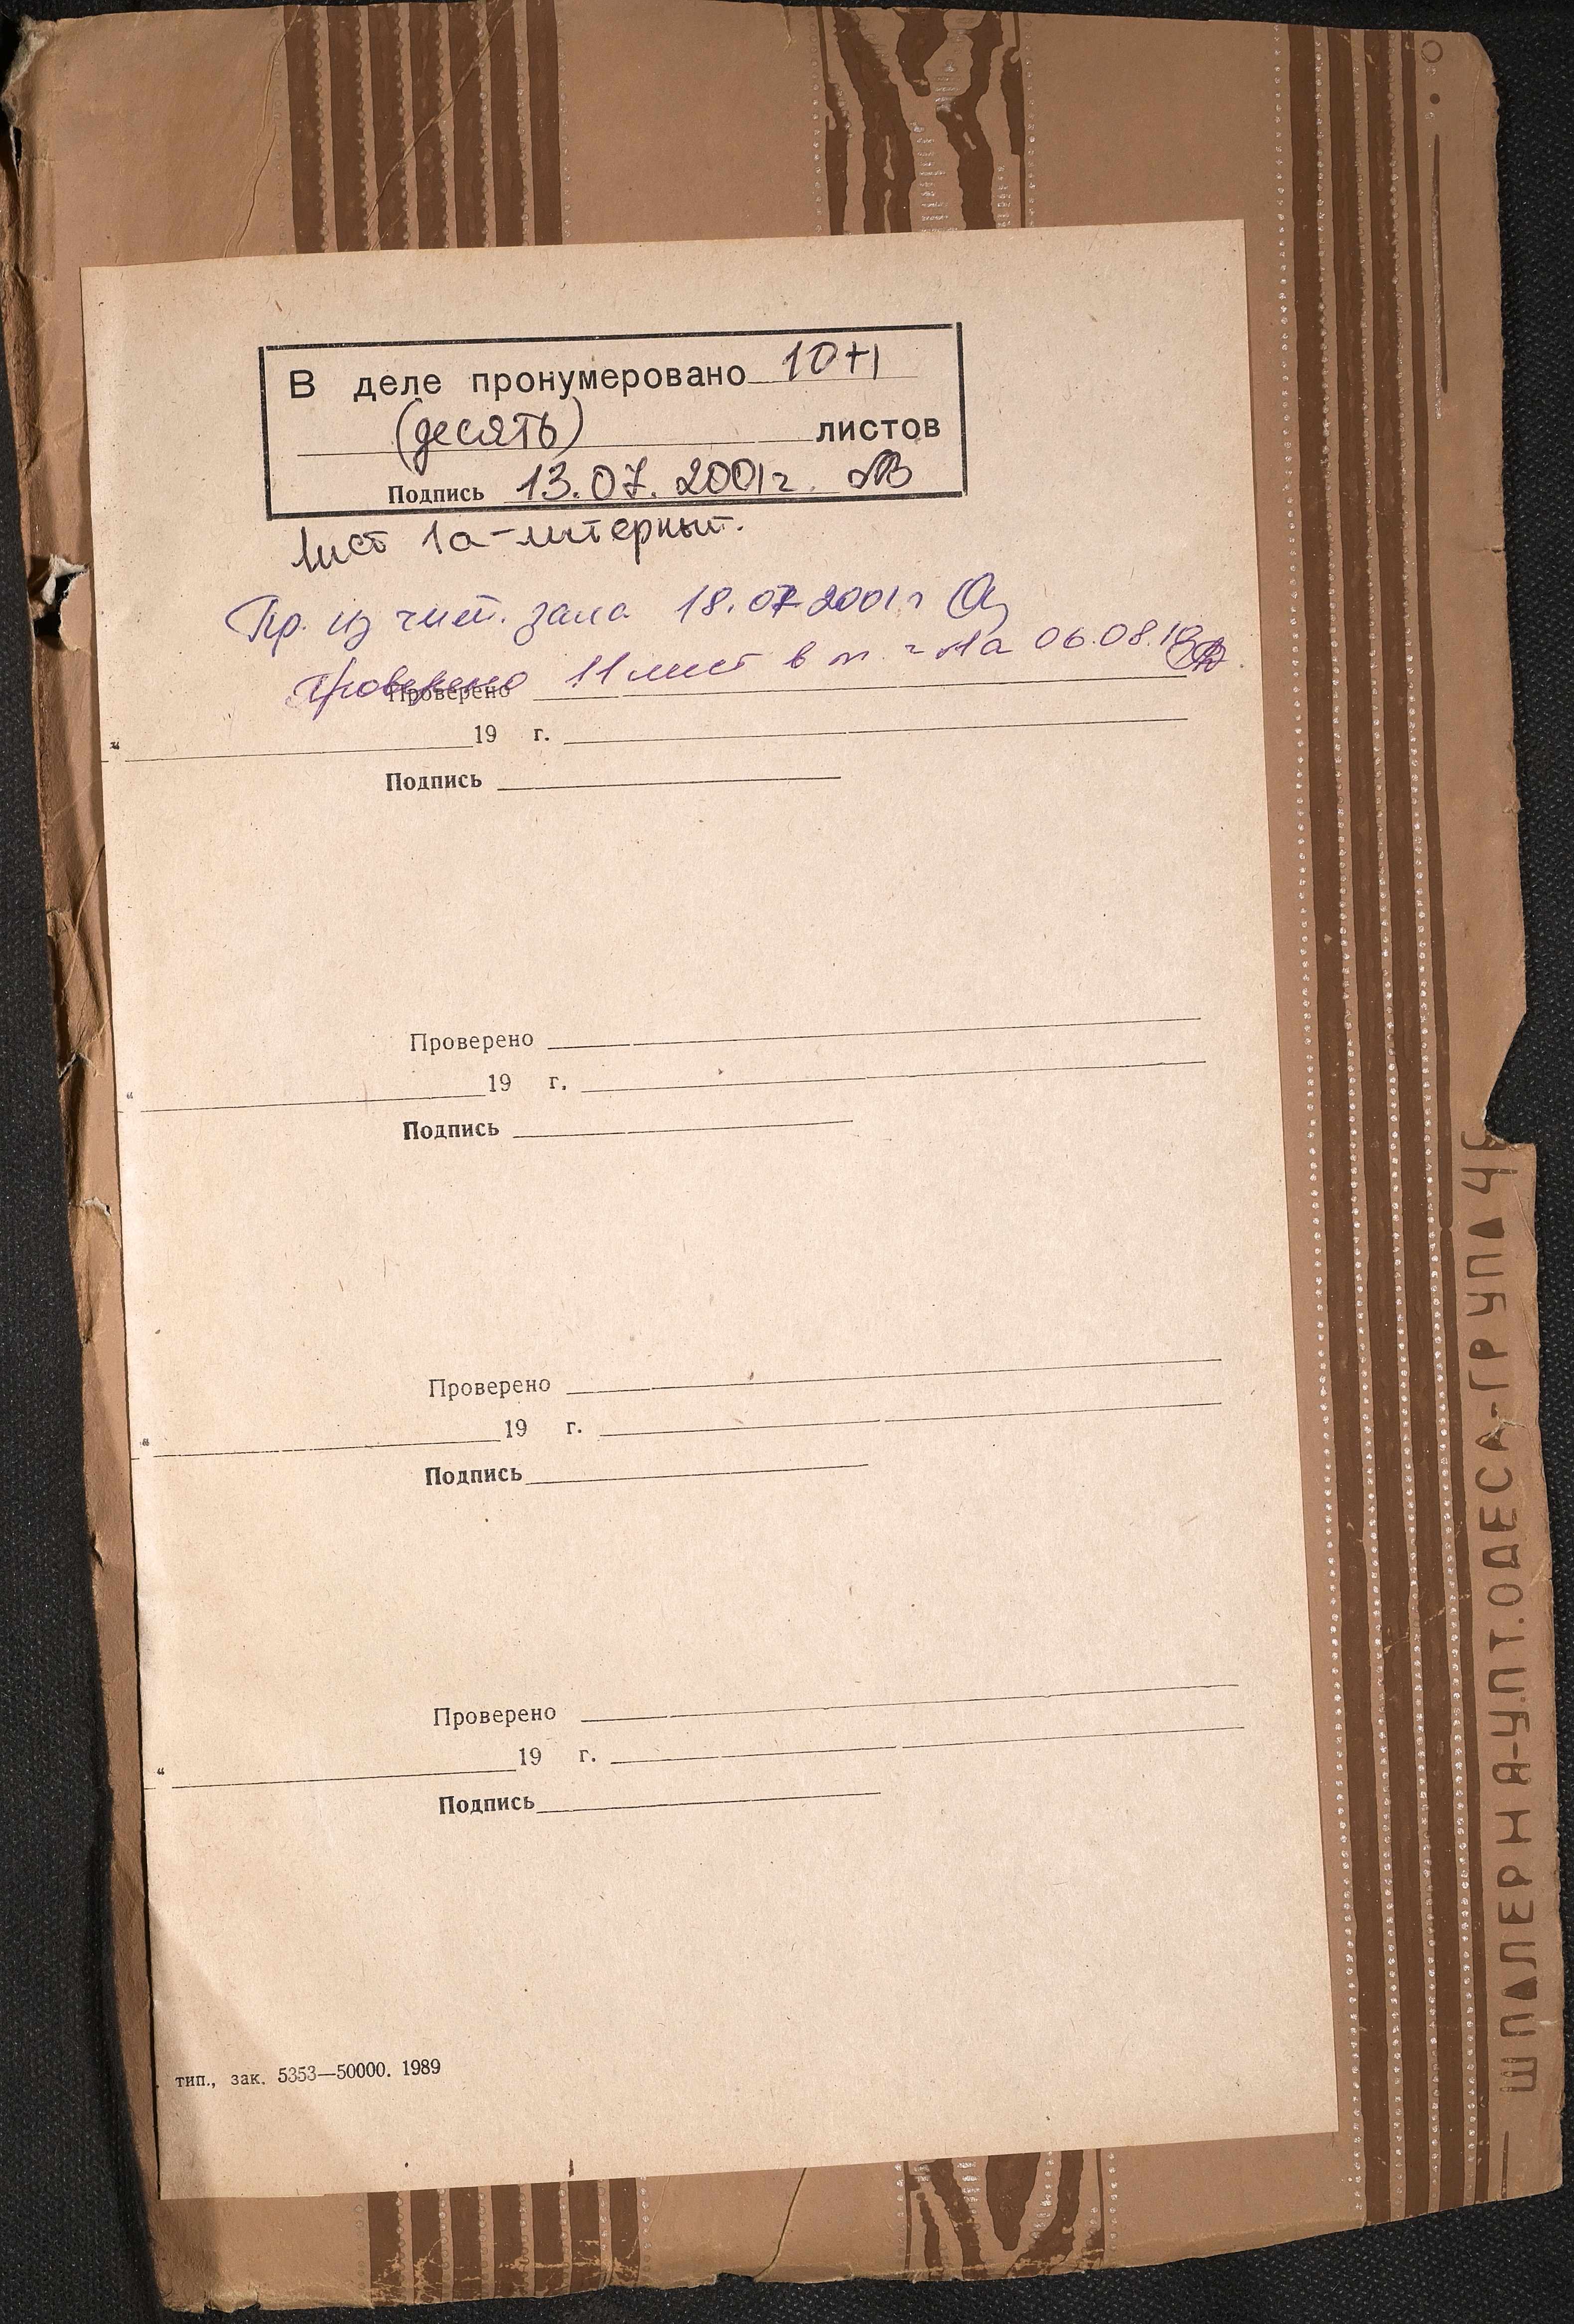 В деле пронумеровано 10+1
(десять) листов
Подпись 13.07.2001г.
Лист 1а-литерный.
Пр. из чит. зала 18.07.2001г
Проверено 11 лист в т. ч 1а 06.08.18
Проверено
" 19 г.
Подпись
Проверено
" 19 г.
Подпись
Проверено
" 19 г.
Подпись
Проверено
" 19 г.
Подпись
тип., зак. 5353—50000. 1989
ШПАЛЕРНА-У.П.Т.ОДЕСА-ГРУПА